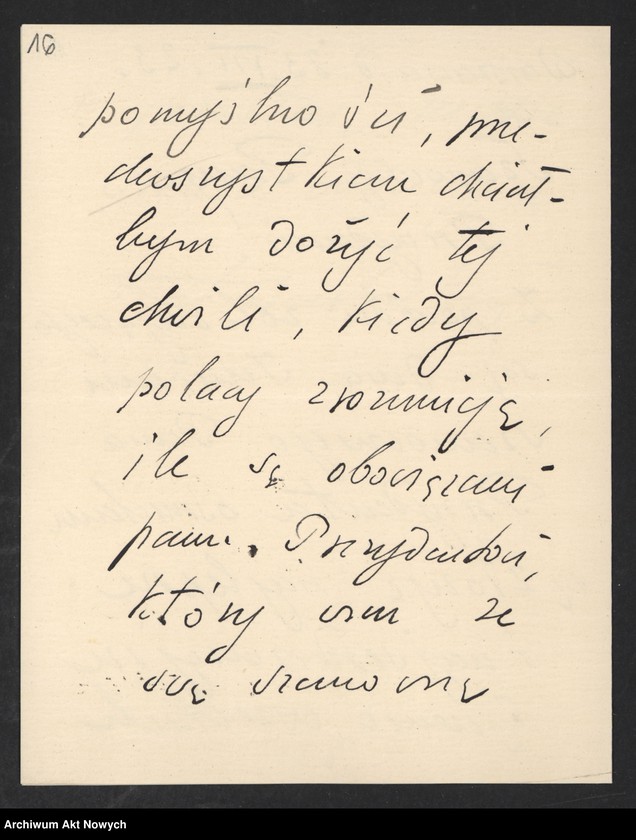 16
pomyślności, prze-
dewszystkiem chciał-
bym dożyć tej
chwili, kiedy
polacy zrozumieją,
ile są obowiązani
panu Prezydentowi,
który wraz ze
swą szanowną
Archiwum Akt Nowych